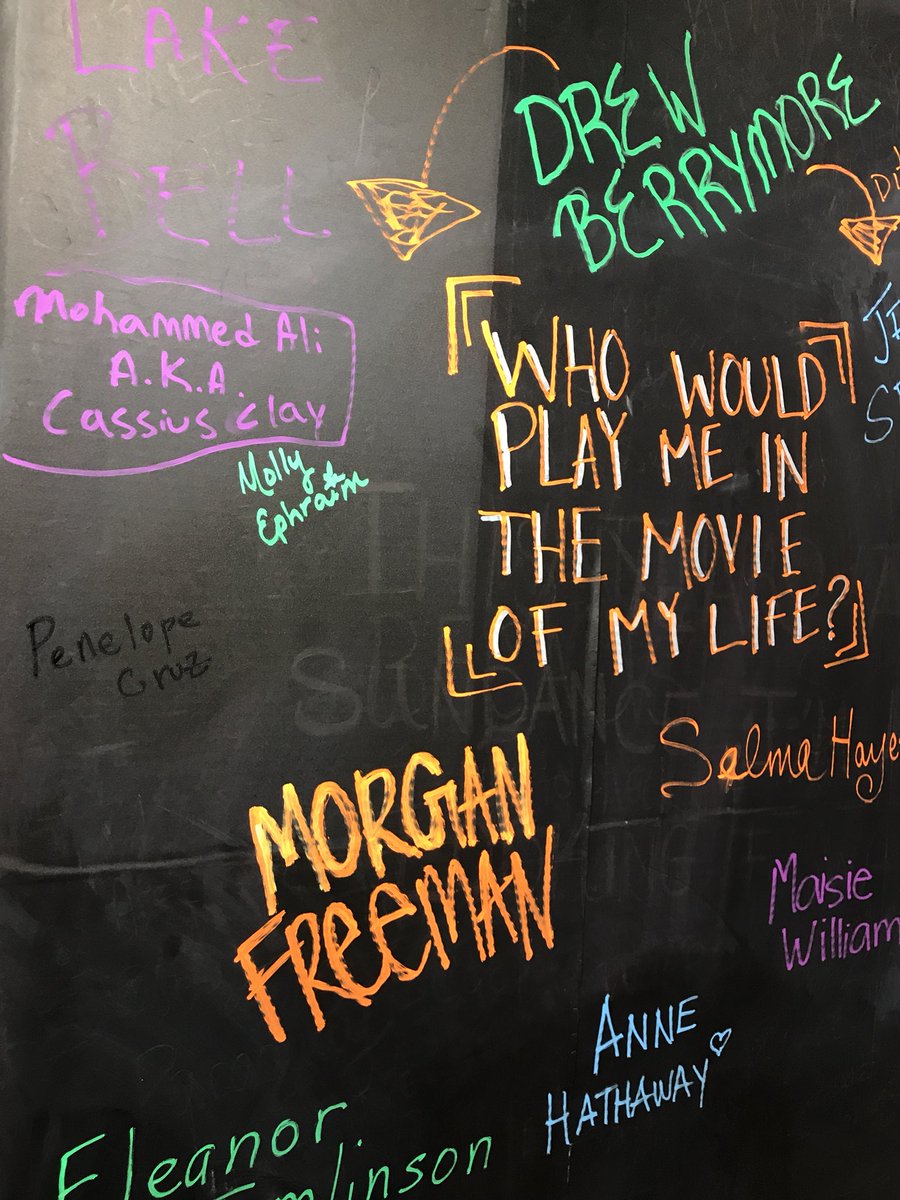 LAKE
BELL
DREW
BERRYMORE
Mohammed Ali
A.K.A.
Cassius Clay
Molly
Ephraim
WHO WOULD
PLAY ME IN
THE MOVIE
OF MY LIFE?
Penelope
Cruz
SUNDANCE
Selma Haye
MORGAN
FREEMAN
Maisie
William
ANNE
HATHAWAY
Eleanor
Tomlinson